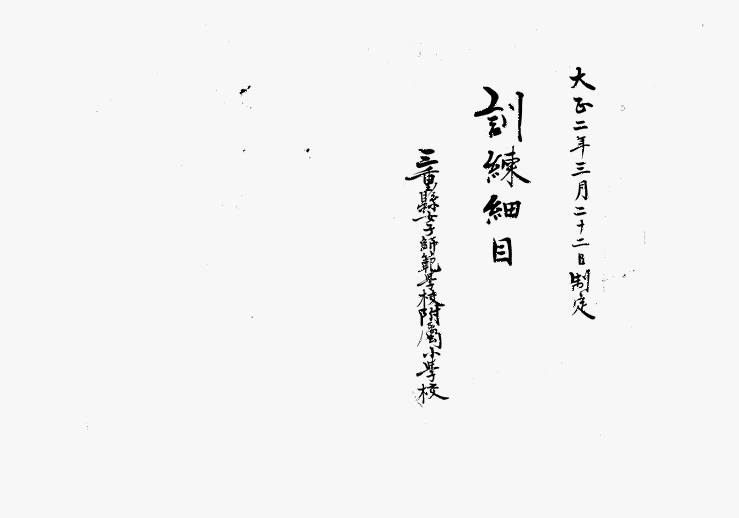 大正二年三月二十二日制定
訓練細目
三重縣女子師範学校附属小學校